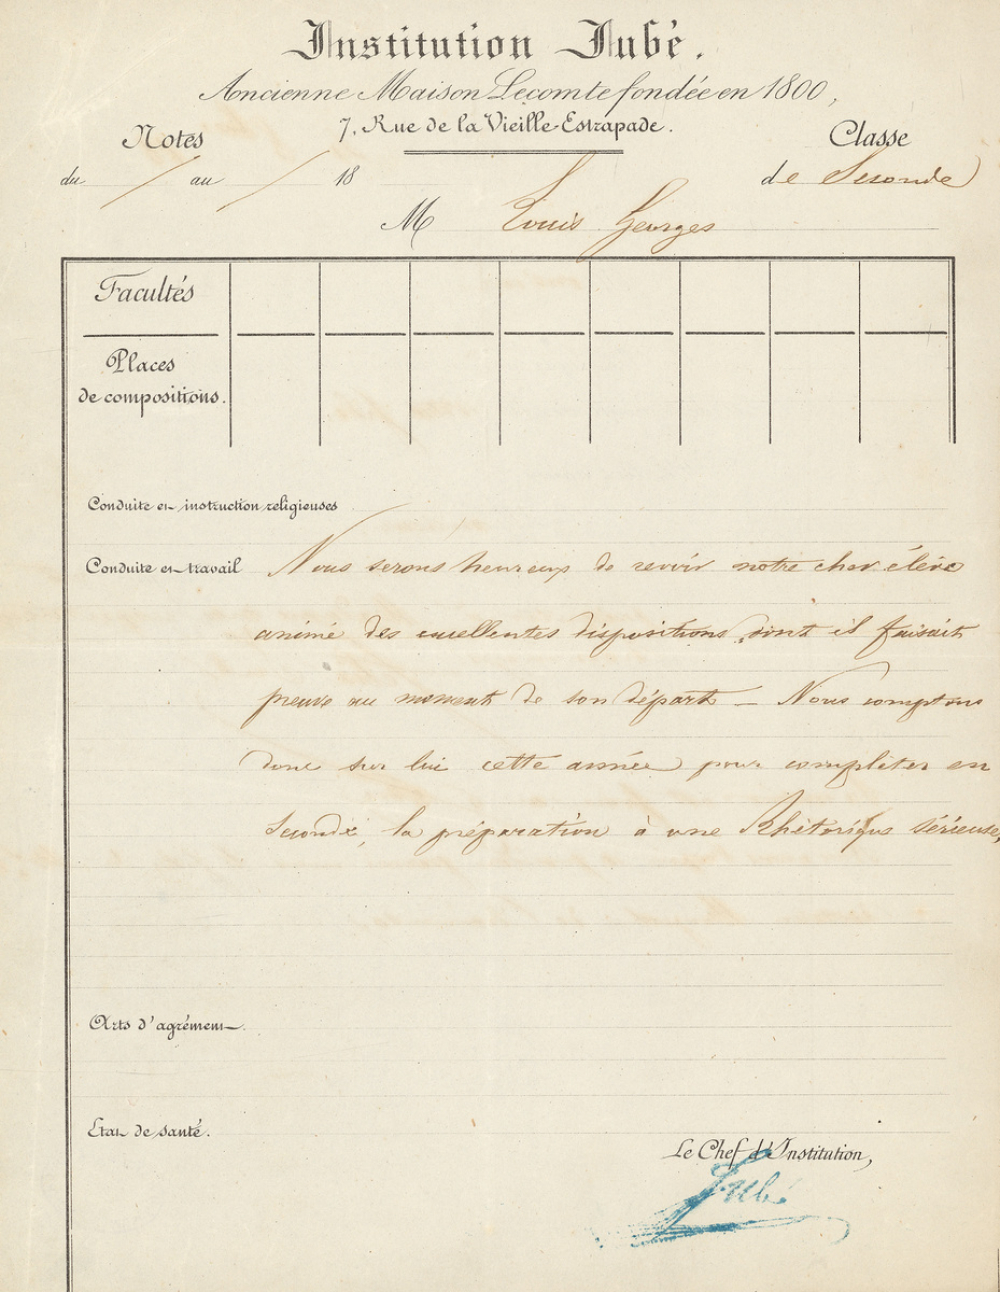 Institution Jubé.
Ancienne Maison Lecomte fondée en 1800,
7, Rue de la Vieille-Estrapade.
Notes
Classe
du / au / 18
de Seconde
M Louis Georges
Facultés
Places
de compositions.
Conduite et instruction religieuses
Conduite et travail Nous serons heureux de revoir notre cher élève
animé des excellentes dispositions dont il faisait
preuve au moment de son départ – Nous comptons
donc sur lui cette année pour compléter en
Seconde, la préparation à une Rhétorique sérieuse,
Arts d'agrément.
Etat de santé.
Le Chef d'Institution,
Jubé